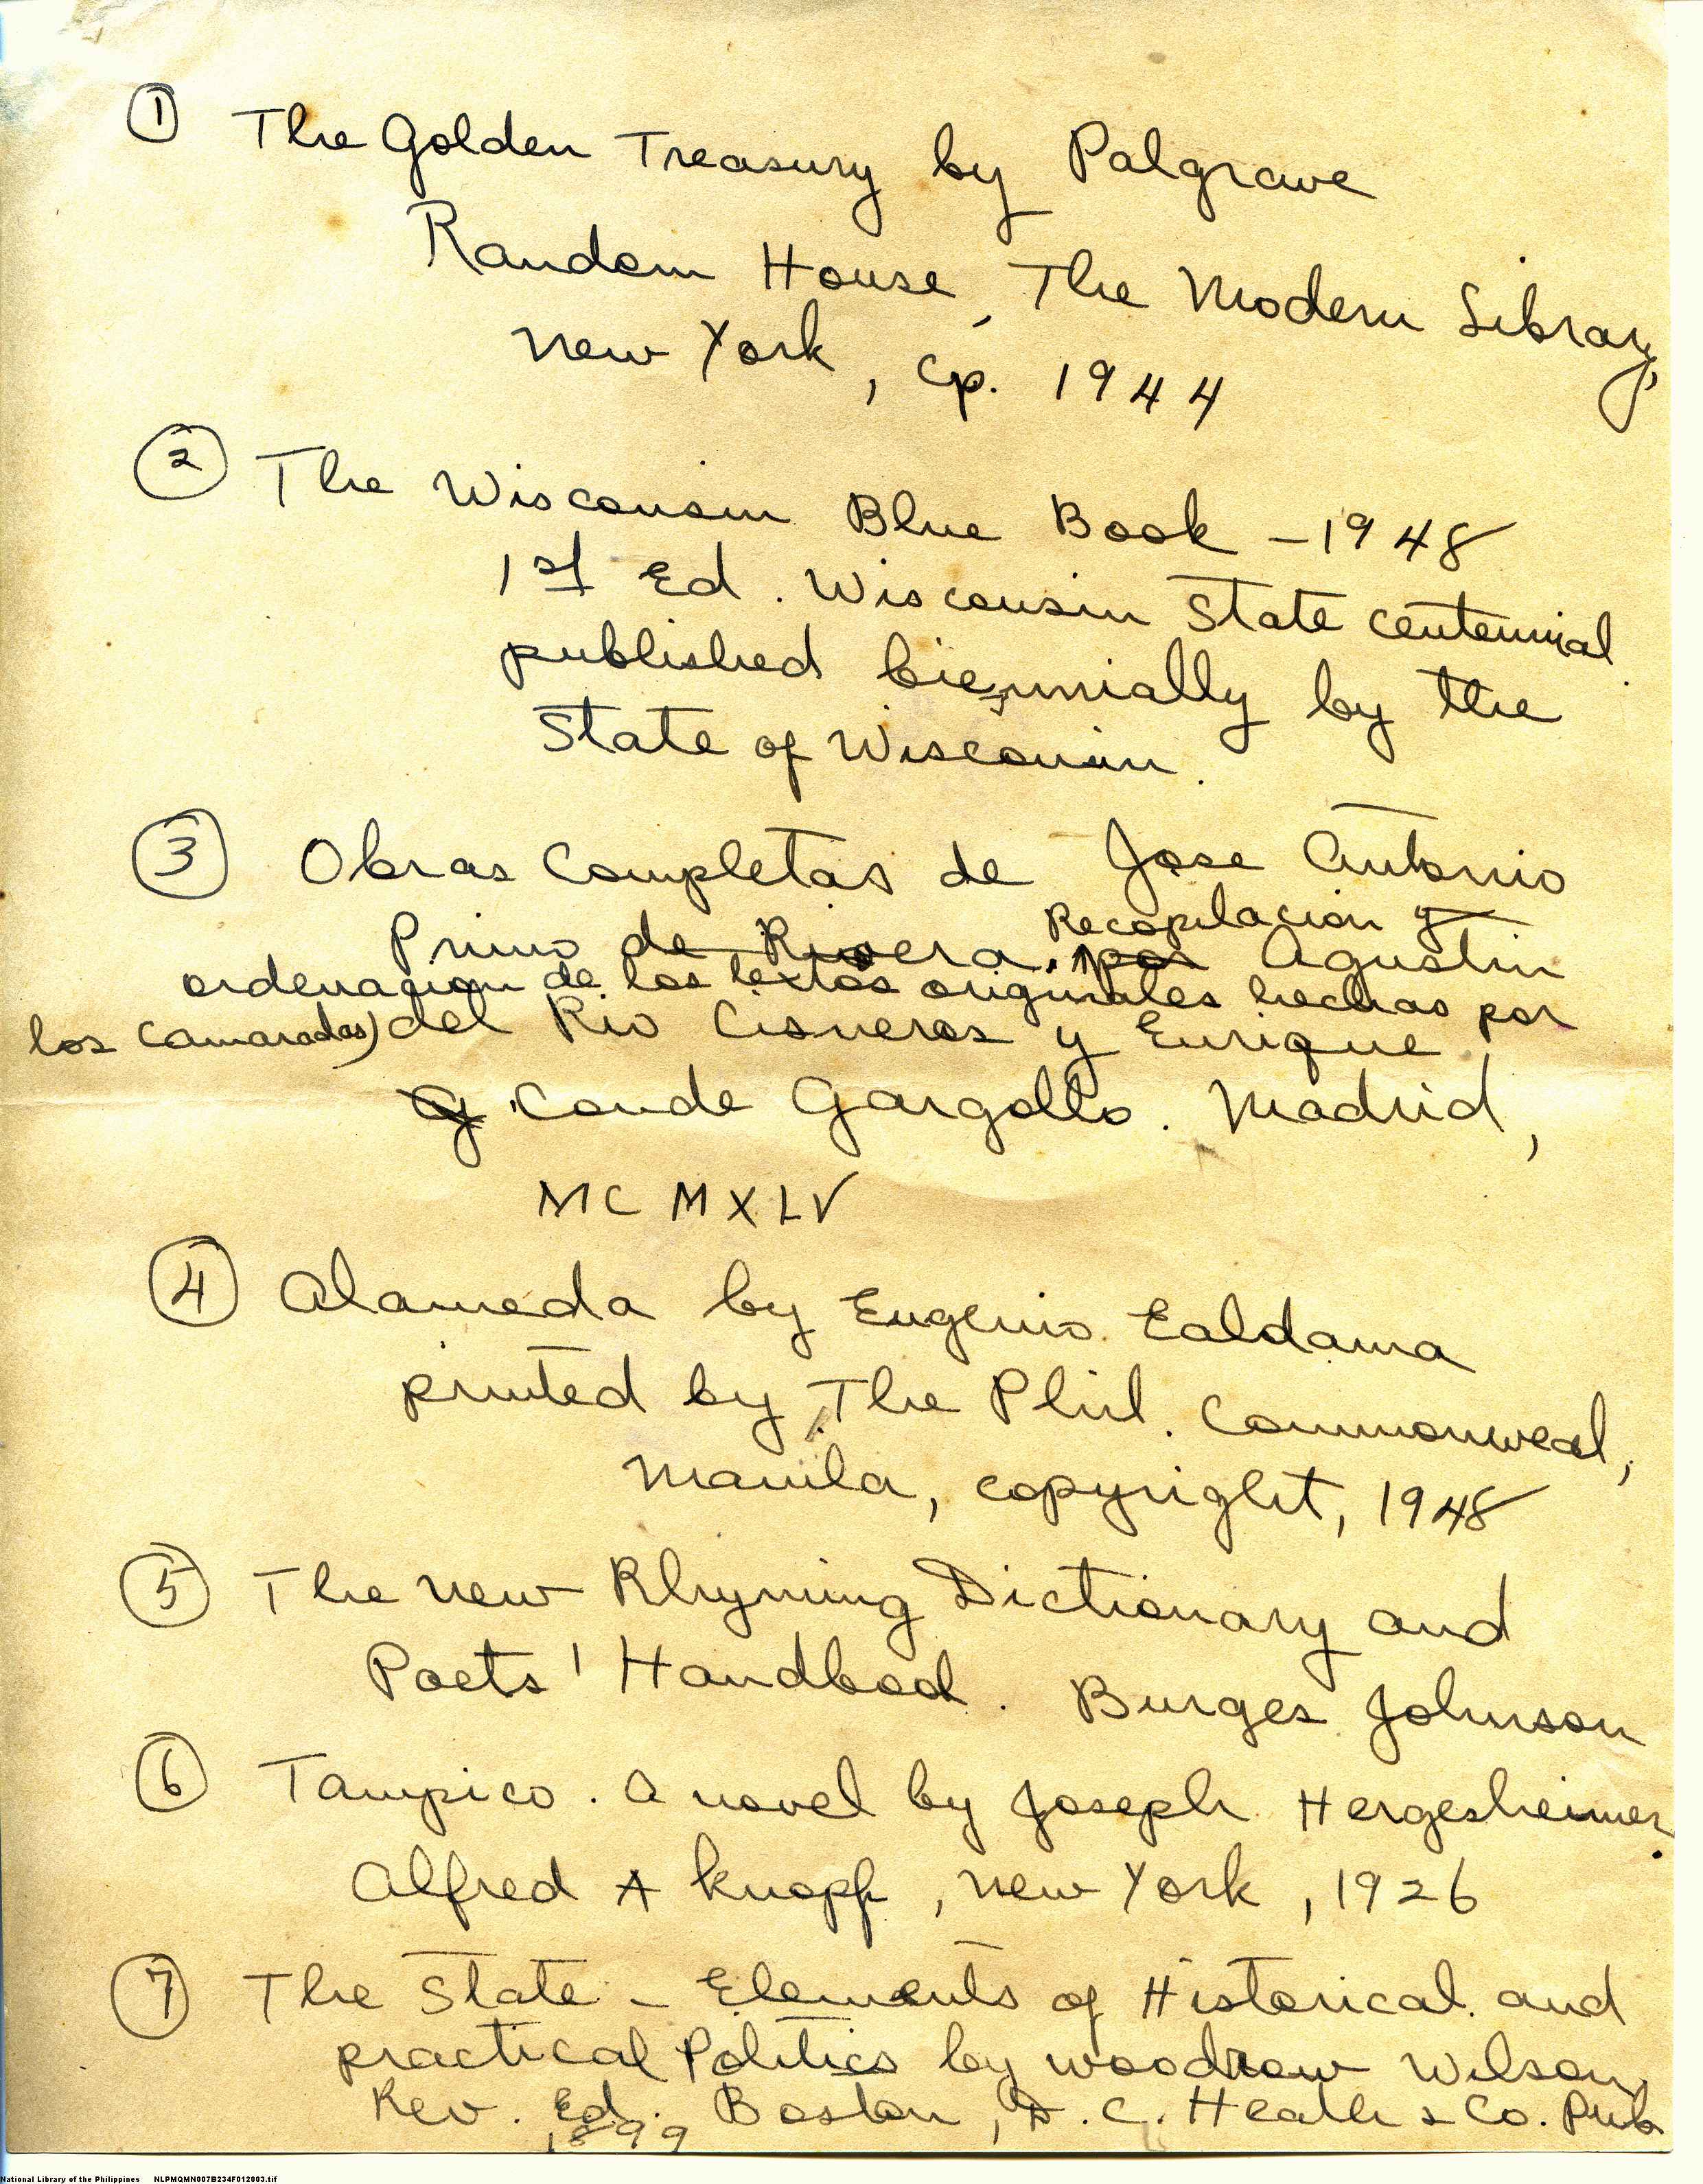 ① The Golden Treasury by Palgrave
Random House, The Modern Library,
New York, cp. 1944
② The Wisconsin Blue Book - 1948
1st Ed. Wisconsin State centennial
published biennially by the
State of Wisconsin.
③ Obras Completas de Jose Antonio
Primo de Rivera. Recopilacion y
por Agustin
ordenacion de los textos originales hechas por
los camaradas) del Rio Cisneros y Enrique
y Conde Gargollo. Madrid,
MCMXLV
④ Alameda by Eugenio Ealdama
printed by The Phil. Commonweal,
Manila, copyright, 1948
⑤ The New Rhyming Dictionary and
Poets' Handbook. Burges Johnson
⑥ Tampico. A novel by Joseph Hergesheimer.
Alfred A Knopf, New York, 1926
⑦ The State - Elements of Historical and
practical Politics by Woodrow Wilson,
Rev. Ed. Boston, D.C. Heath & Co. Pub.
1899
National Library of the Philippines NLPMQMN007B234F012003.tif